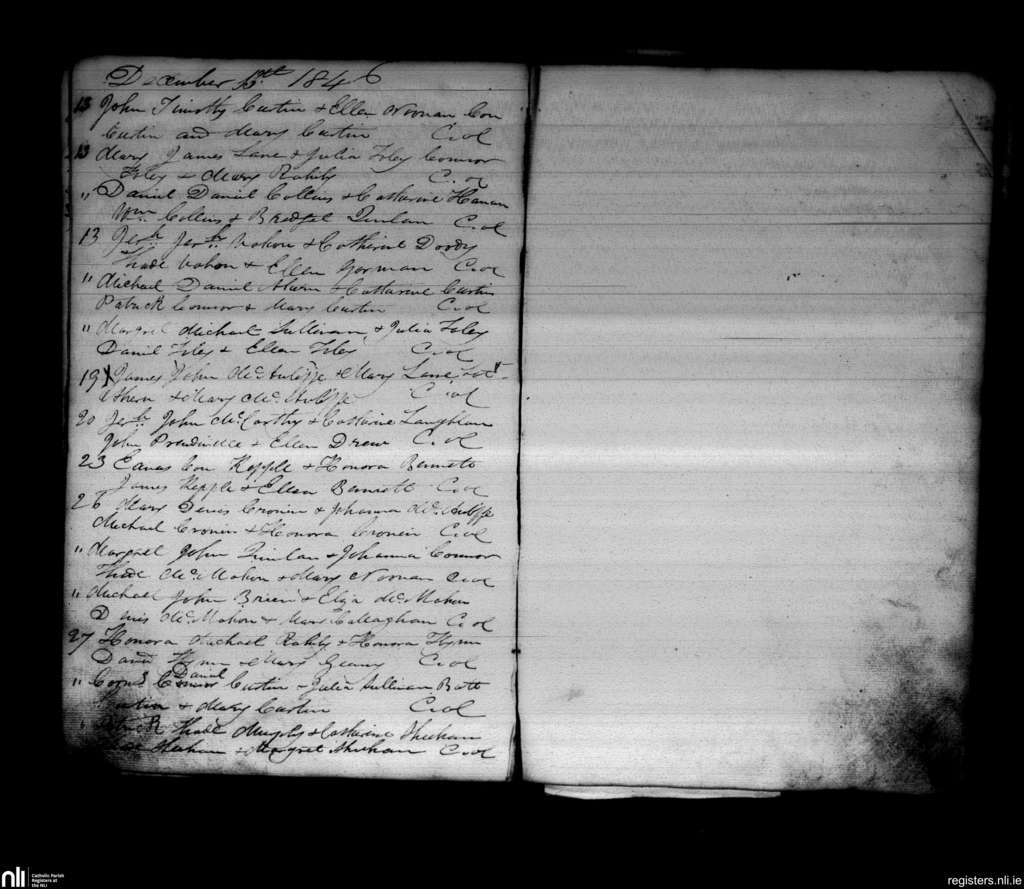 December 13th 1846
13 John Timothy Curtin & Ellen Noonan Con
Curtin and Mary Curtin C.ol
13 Mary James Lane & Julia Foley Connor
Foley & Mary Rahily C.ol
" Daniel Daniel Collins & Catharine Hanan
Wm Collins & Bredget Quinlan C.ol
13 Jerh Jerh Mahon & Catherine Doody
Thade Mahon & Ellen Gorman C.ol
" Michael Daniel Ahern & Catharine Curtin
Patrick Connor & Mary Curtin C.ol
" Margret Michael Sullivan & Julia Foley
Daniel Foley & Ellen Foley C.ol
19 James John McAuliffe & Mary Lane
Ahern & Mary McAuliffe C.ol
20 Jerh John McCarthy & Catherine Laughlan
John & Ellen Drew C.ol
23 Con Kepple & Honora Bennett
James Kepple & Ellen Bennett C.ol
26 Mary Denis Cronin & Johanna McAuliffe
Michael Cronin & Honora Cronin C.ol
" Margret John Quinlan & Johanna Connor
Thade McMahon & Mary Noonan C.ol
" Michael John Brien & Eliza McMahon
Denis McMahon & Mary Callaghan C.ol
27 Honora Michael Rahily & Honora Flynn
David Flynn & Mary Geany C.ol
" Corns Daniel Curtin & Julia Sullivan Batt
Curtin & Mary Curtin C.ol
" Patrick Thade Murphy & Catharine Sheehan
Sheehan & Margret Sheehan C.ol
nli
Catholic Parish
Registers at
the NLI
registers.nli.ie